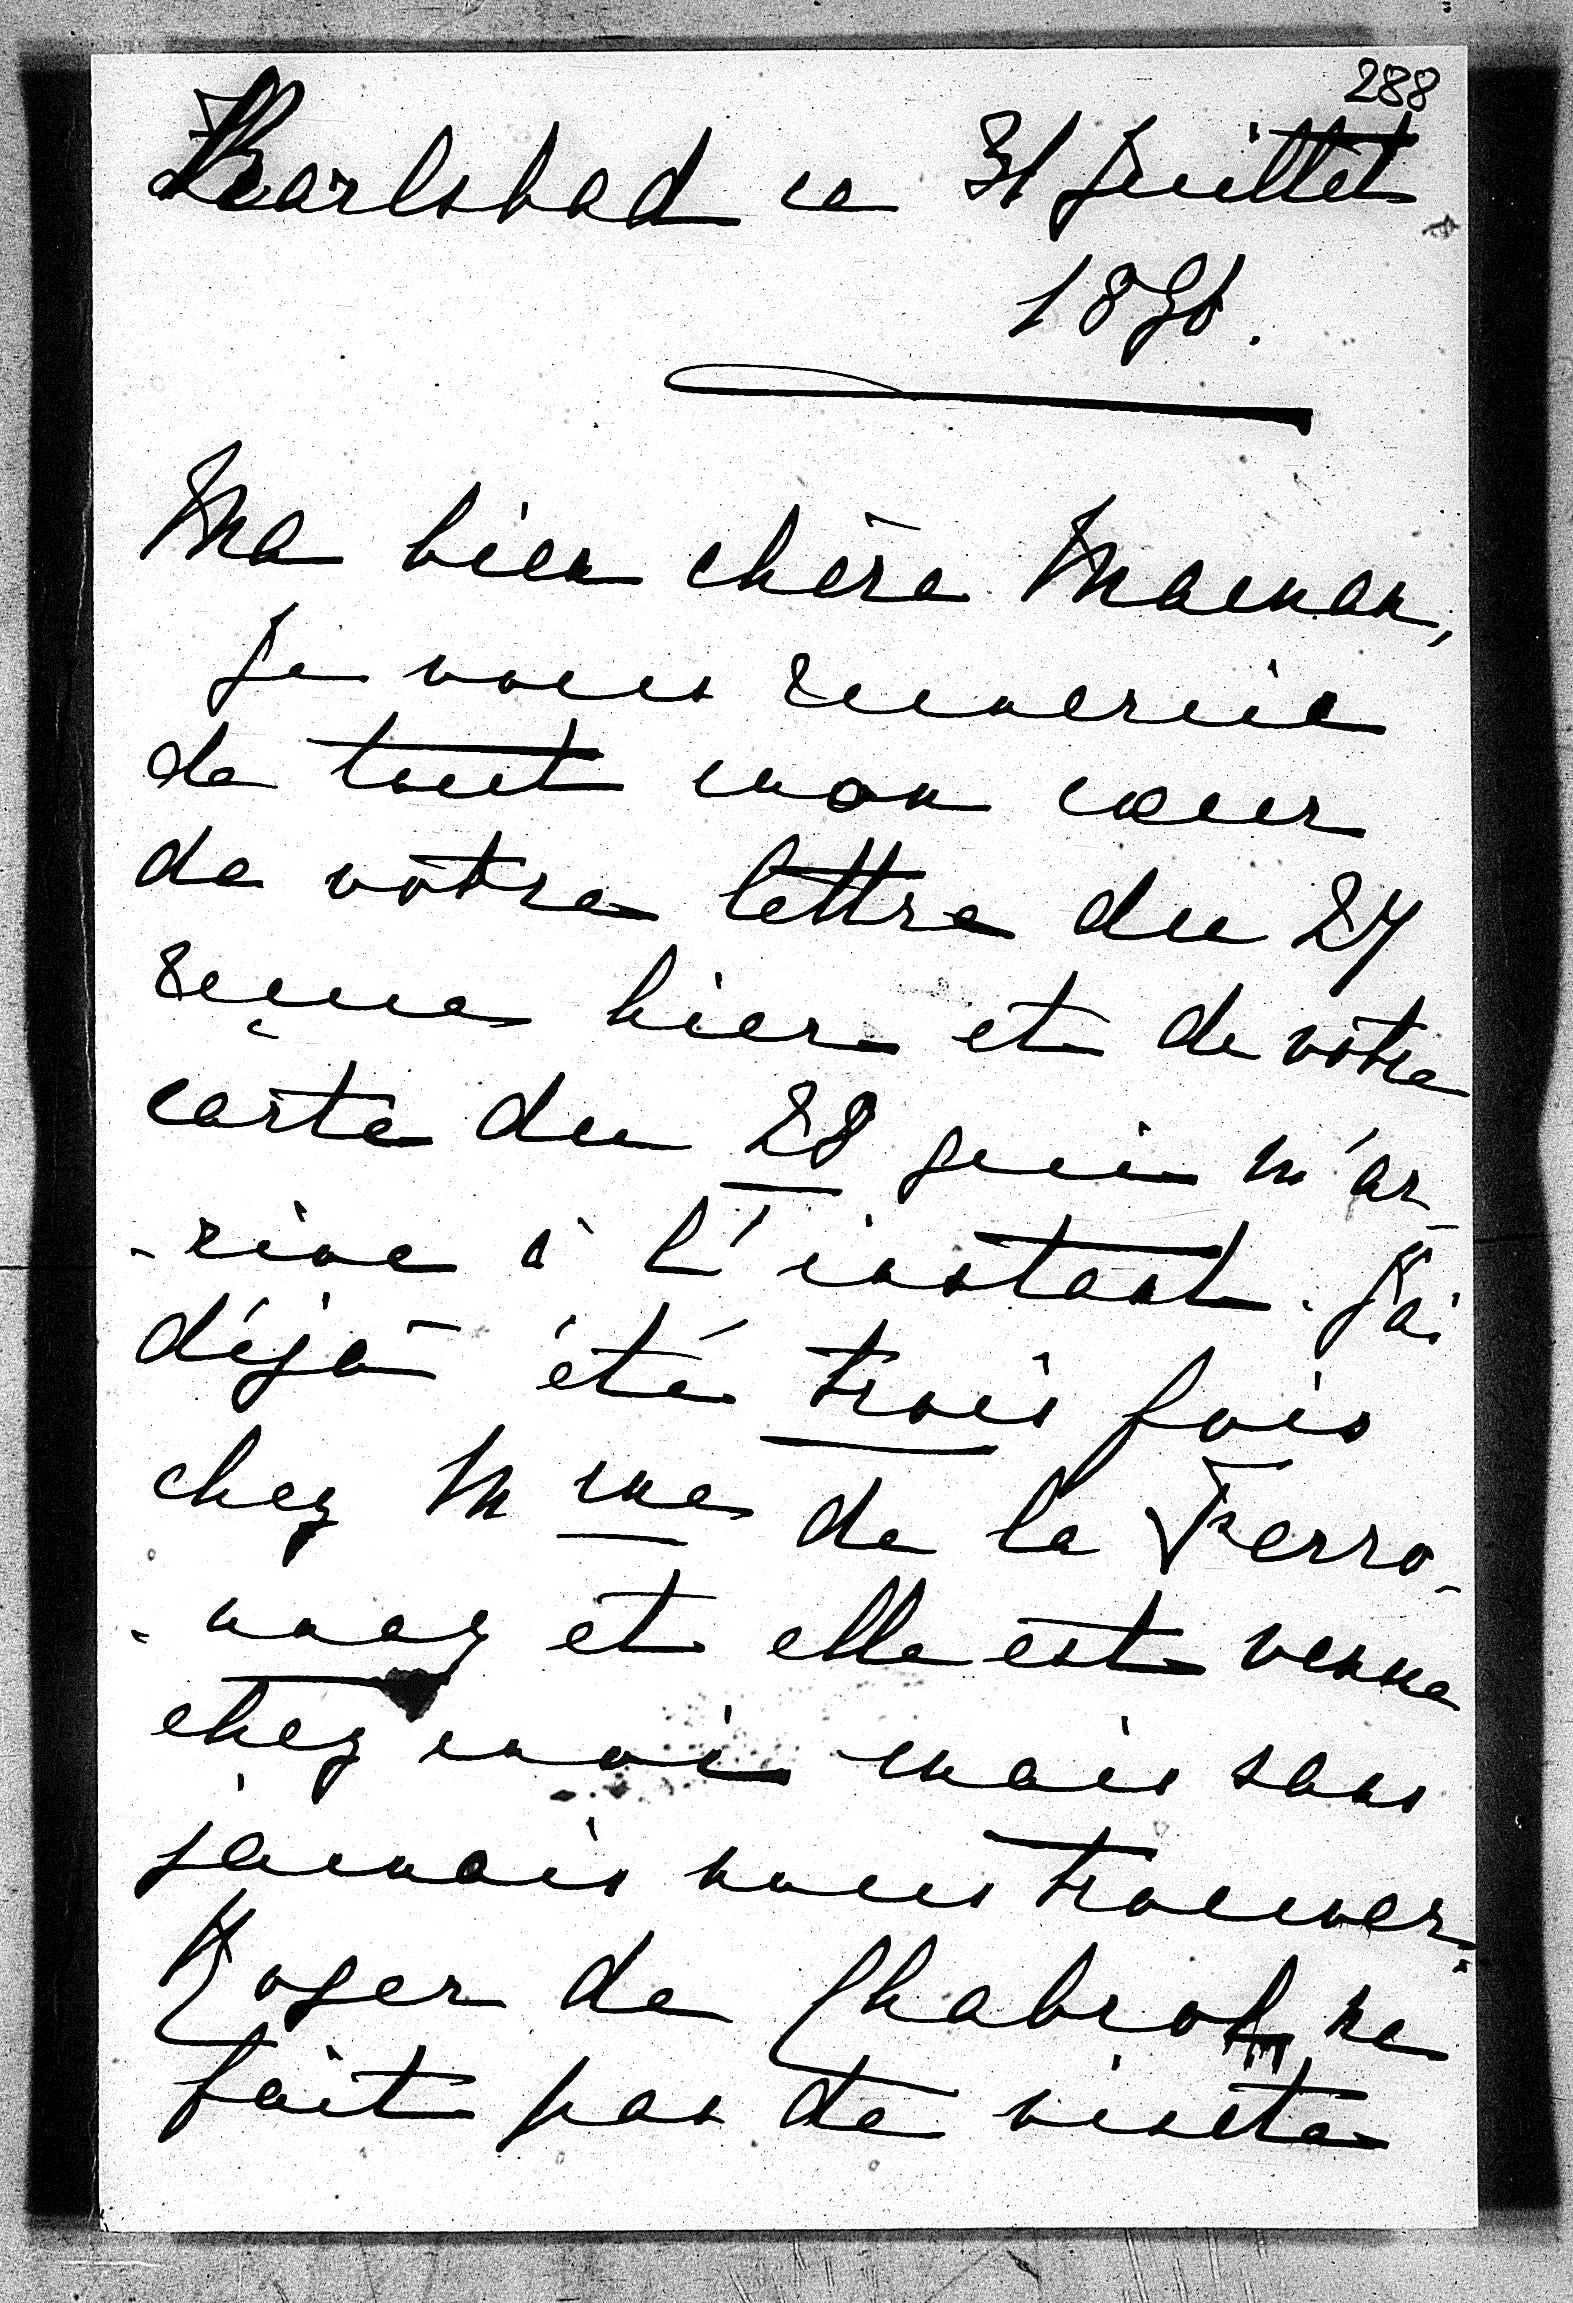 288
Karlsbad ce 31 Juillet
1891.
Ma bien chère Maman,
Je vous remercie
de tout mon cœur
de vôtre lettre du 27
reçue hier et de vôtre
carte du 28 qui m'ar-
-rive à l'instant. J'ai
déjà été trois fois
chez Mme de la Ferro-
-nnay et elle est venue
chez moi mais sans
jamais nous trouver.
Roger de Chabrol ne
fait pas de visite